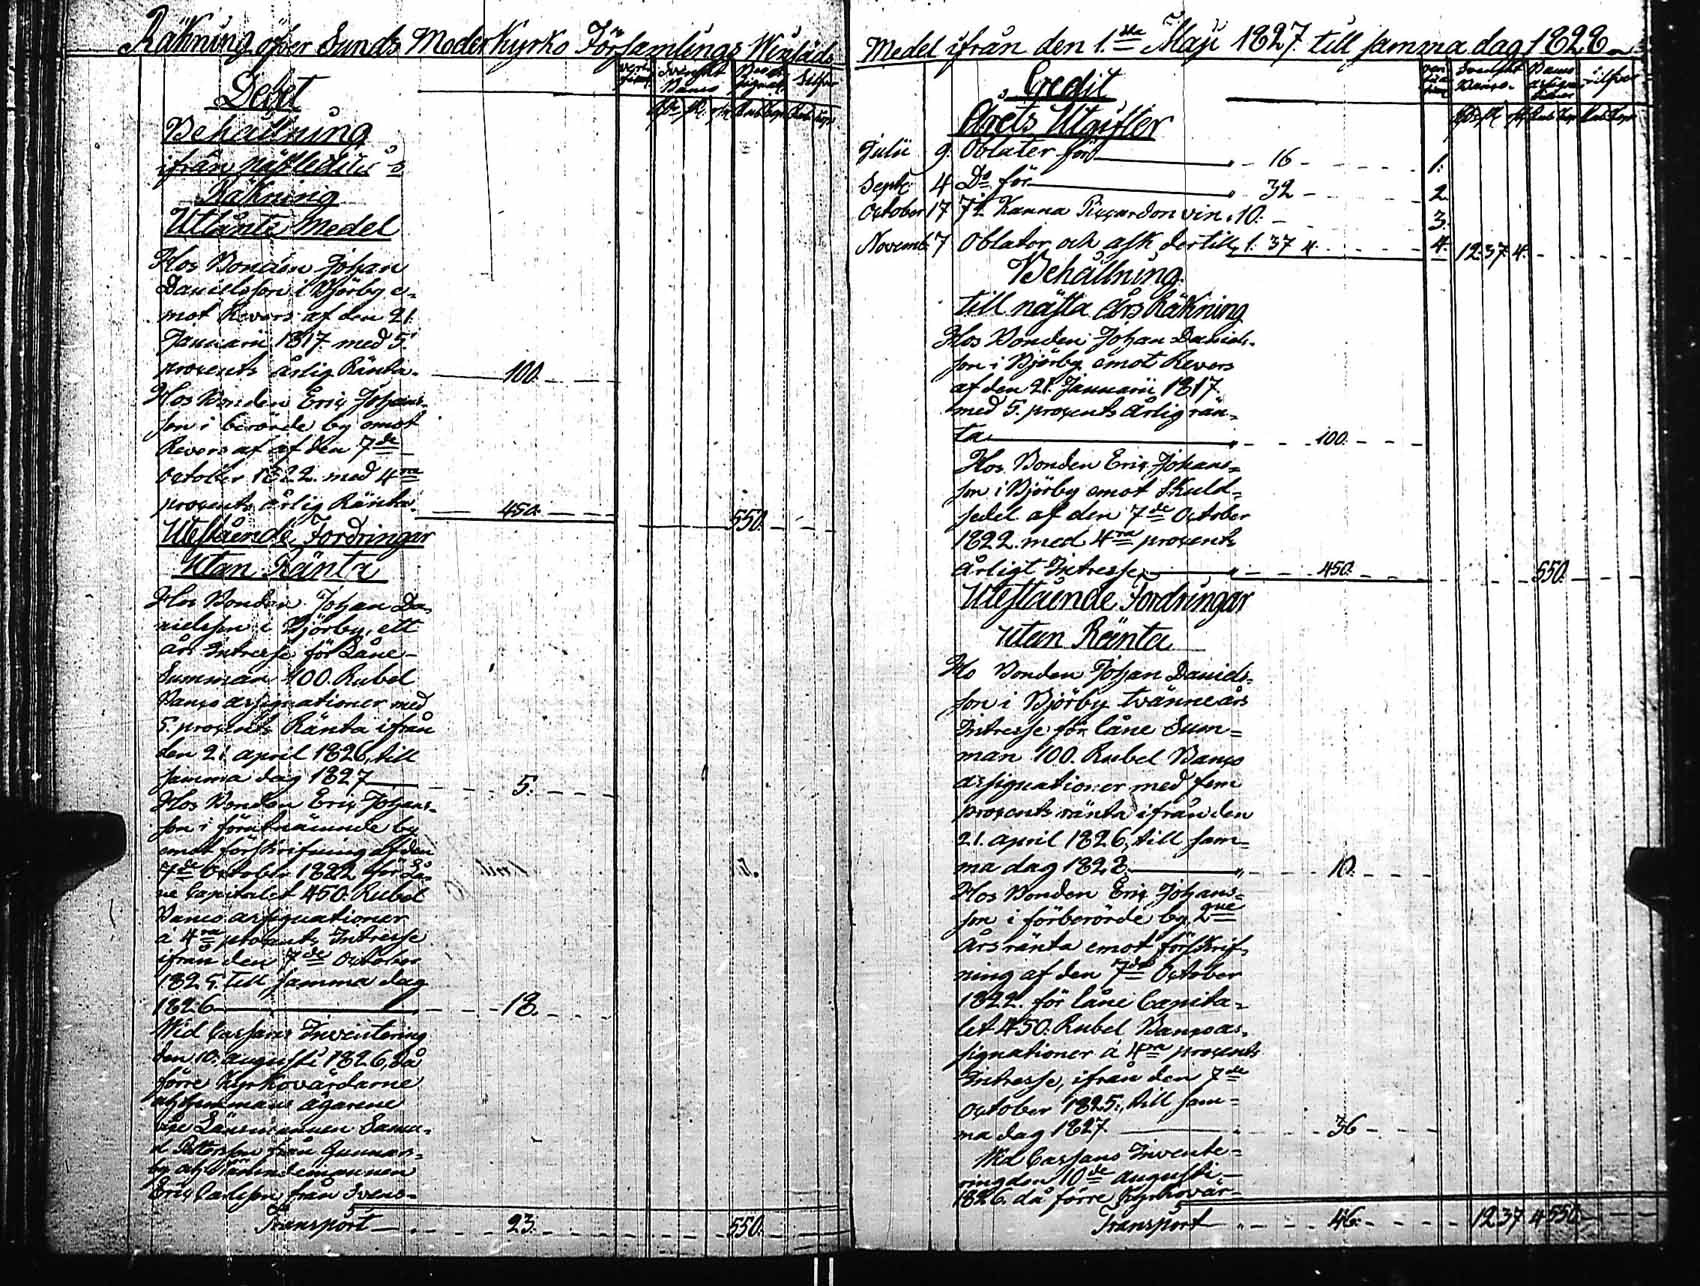 Räkning öfver Sunds Moderkyrko Församlings Winsäds
Debet
Svenskt Banco
Silfver
Behållning
ifrån nästledit års
Räkning
Utlånte Medel
Hos Bonden Johan
Danielsson i Björby e-
mot Revers af den 21
Januarii 1817 med 5
procents årlig Ränta. 100.
Hos Bonden Eric Johans-
son i berörde by emot
Revers af af den 7de
October 1822. med 4ra
procents årlig Ränta. 450. 550.
Utestående Fordringar
Utan Ränta
Hos Bonden Johan Da-
nielsson i Björby, ett
års Intresse för Låne-
Summan 100. Rubel
Banco assignationer med
5. procents Ränta ifrån
den 21 april 1826, till
samma dag 1827 5.
Hos Bonden Eric Johans-
son i förutnämnde by
emot förskrifning af den
7de October 1822 för Lå-
ne Capitalet 450. Rubel
Banco assignationer
à 4ra procents Intresse
ifrån den 7de October
1825. till samma dag
1826 18.
Wid Cassans Inventering
den 10. augusti 1826, då
förre Kyrkovärdarne
ägarene
Länsmannen Samu-
el Pettersson från Gunnars-
by och Nämndemannen
Eric Carlsson från Svens-
Transport 23. 550.
Medel ifrån den 1.sta Maji 1827. till samma dag 1828
Credit
Svenskt Banco
Banco assignationer
Silfver
Årets Utgifter
Julii 9. Oblater för 16 1.
Sept: 4 Do för 32 2.
October 17 7½ Kanna Piccardon vin 10. 3.
Novemb. 7 Oblater och ask dertill, 1. 37 4. 4. 12.37.4.
Behållning
till nästa års Räkning
Hos Bonden Johan Daniels-
son i Björby emot Revers
af den 21. Januarii 1817.
med 5. procents årlig rän-
ta 100.
Hos Bonden Eric Johans-
son i Björby emot Skuld-
sedel af den 7de October
1822. med 4ra procents
årligt Intresse 450. 550.
Utestående Fordringar
utan Ränta
Ho Bonden Johan Daniels-
son i Björby tvänne års
Intresse för låne Sum-
man 100. Rubel Banco
assignationer med fem
procents ränta ifrån den
21. april 1826, till sam-
ma dag 1828. 10.
Hos Bonden Eric Johans-
son i förberörde by 2ne
års ränta emot förskrif-
ning af den 7de October
1822. för låne Capita-
let 450. Rubel Banco as-
signationer à 4ra procents
Intresse, ifrån den 7de
October 1825., till sam-
ma dag 1827 36
Wid Cassans Invente-
ring den 10de augusti
1826. då förre Kyrkovär-
Transport 46. 12 37 4 550.